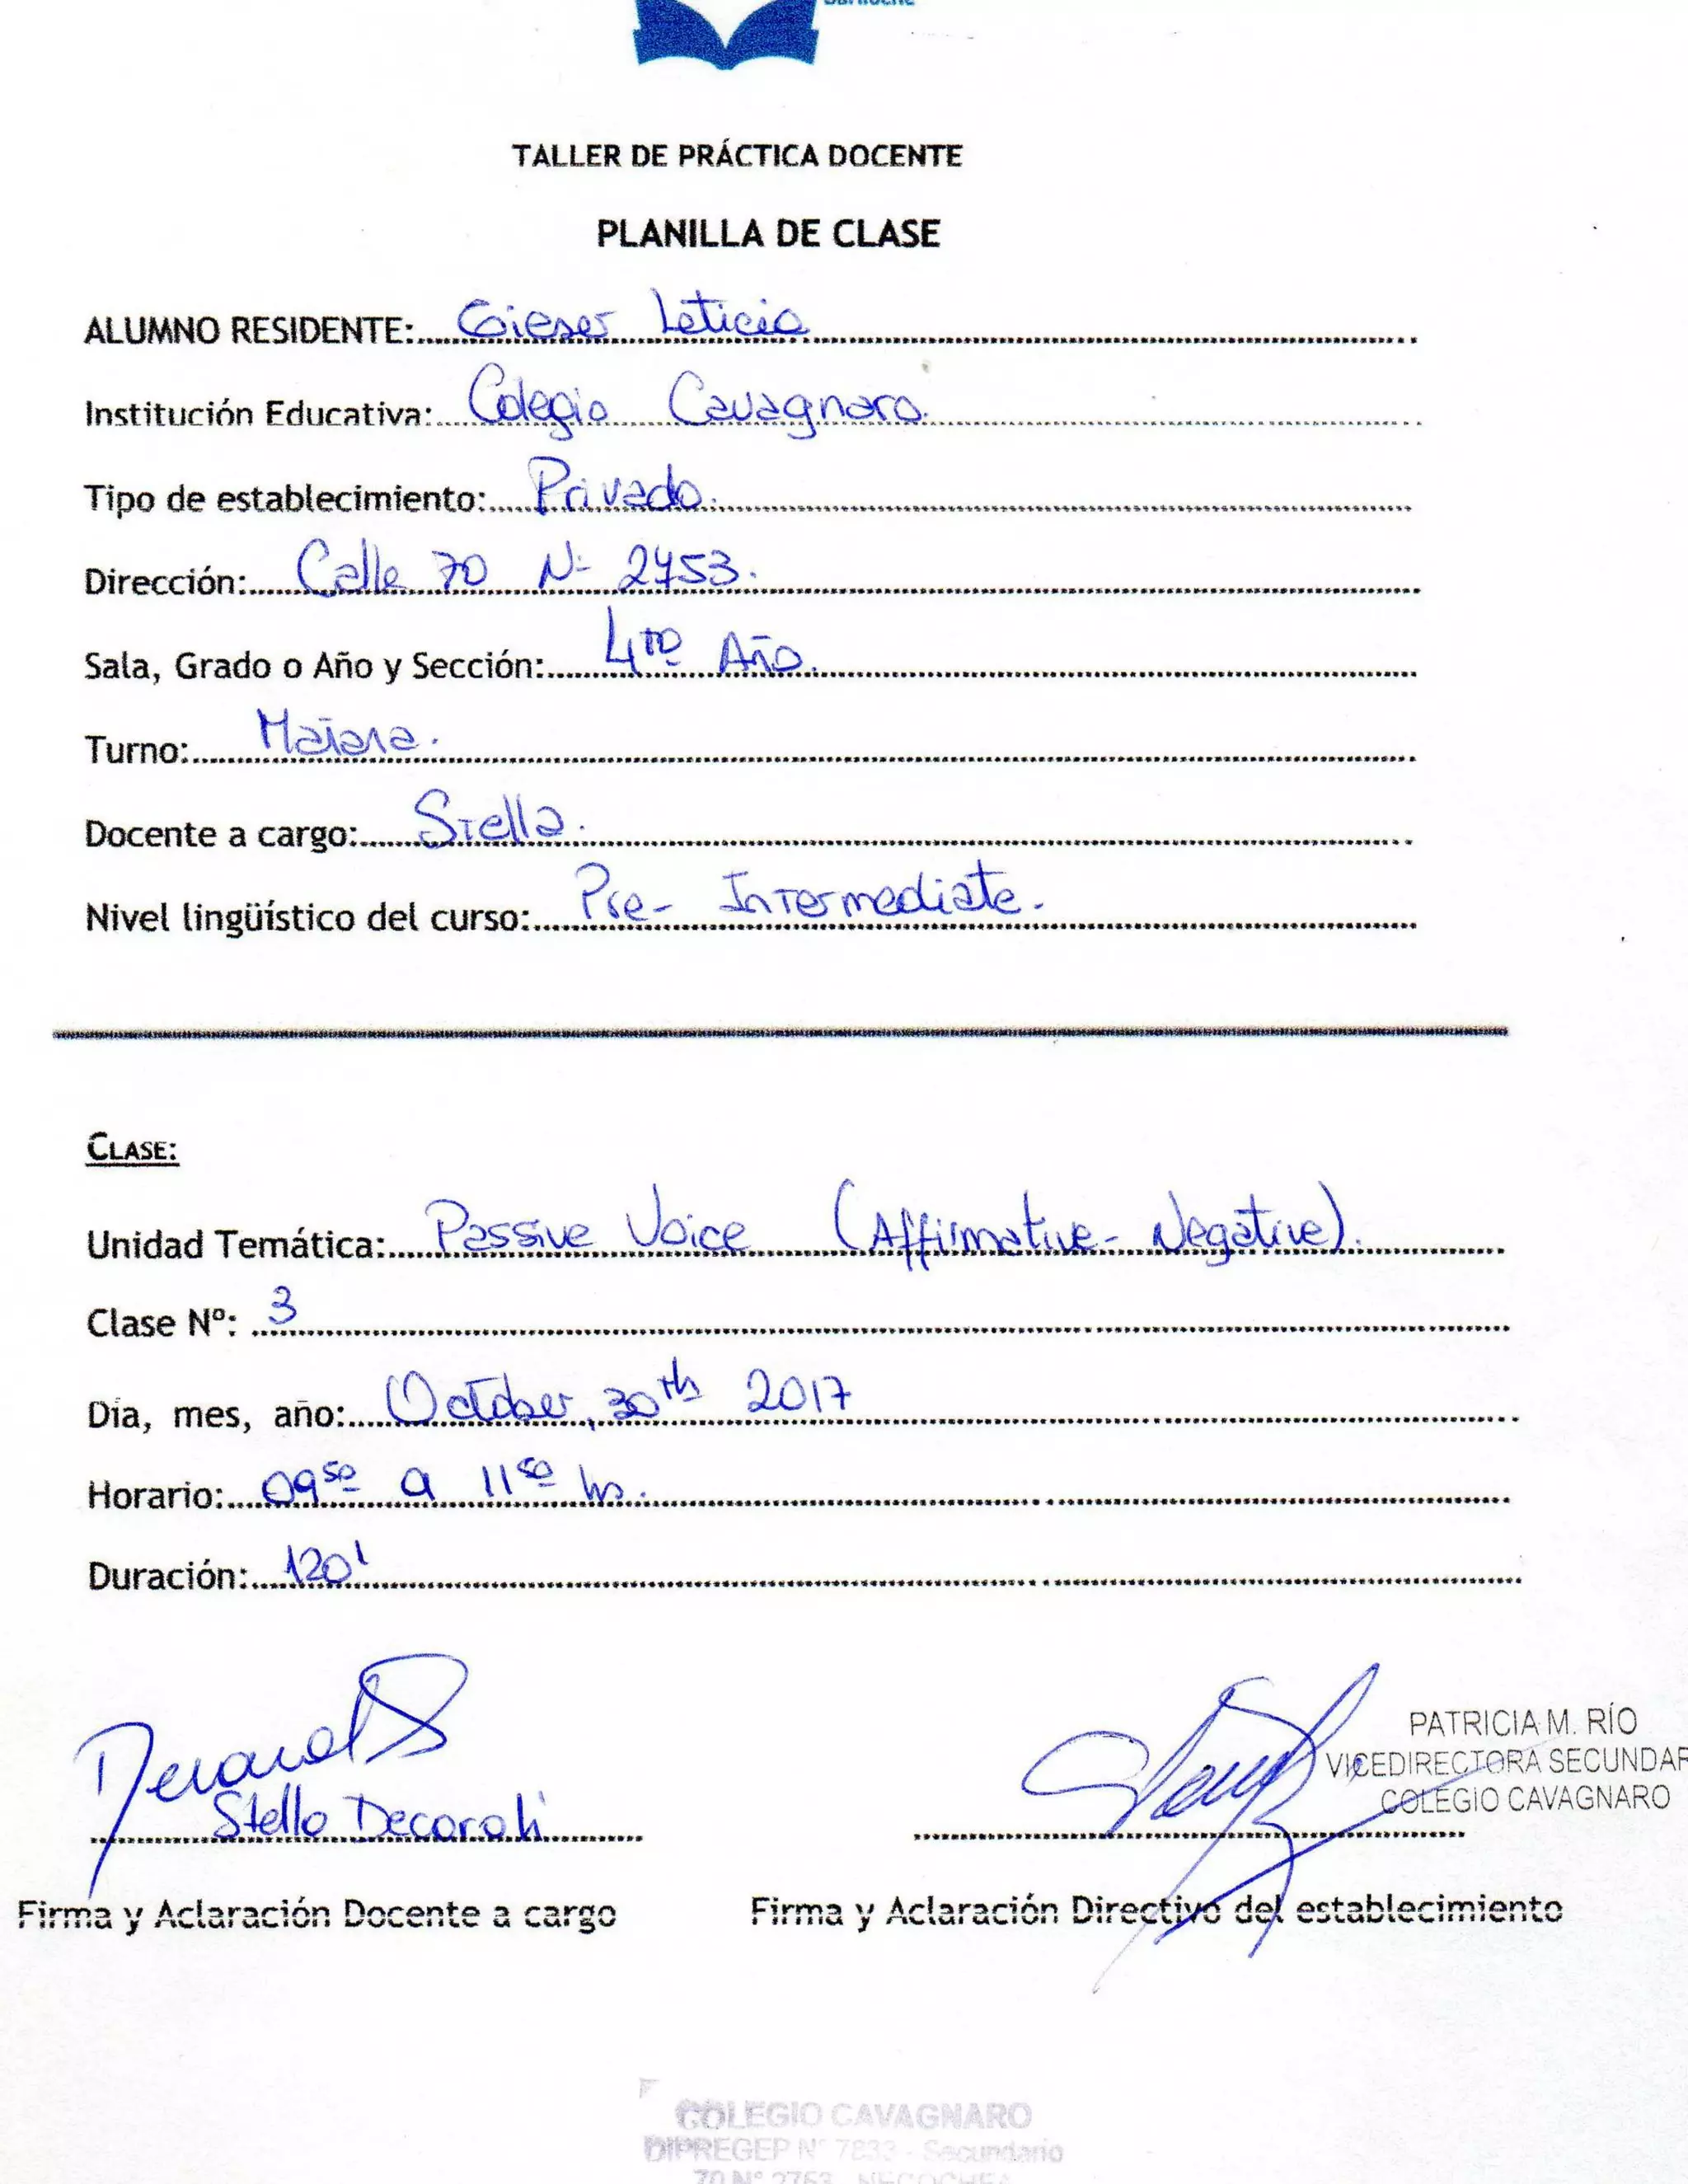 Bariloche
TALLER DE PRÁCTICA DOCENTE
PLANILLA DE CLASE
ALUMNO RESIDENTE: Gieser Leticia
Institución Educativa: Colegio Cavagnaro.
Tipo de establecimiento: Privado.
Dirección: Calle 70 N- 2453.
Sala, Grado o Año y Sección: 4to Año.
Turno: Mañana.
Docente a cargo: Stella.
Nivel lingüístico del curso: Pre- Intermediate.
CLASE:
Unidad Temática: Passive Voice (Affirmative- Negative).
Clase Nº: 3
Día, mes, año: October, 30th 2017
Horario: 09 50 a 11 50 hs.
Duración: 120'
Stella Decarali
PATRICIA M. RÍO
VICEDIRECTORA SECUNDAR
COLEGIO CAVAGNARO
Firma y Aclaración Docente a cargo Firma y Aclaración Directivo del establecimiento
COLEGIO CAVAGNARO
DIPREGEP Nº 7833 - Secundario
70 Nº 2753 NECOCHEA